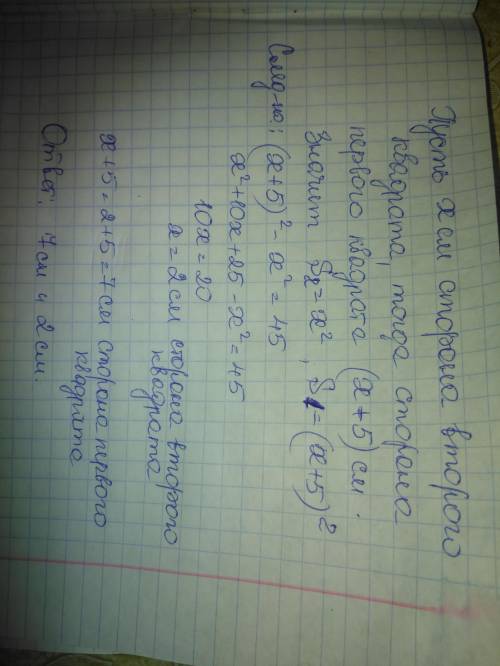 Пусть x см сторона второго
квадрата, тогда сторона
первого квадрата (x+5) см.
Значит S₂=x², S₁=(x+5)²
След-но: (x+5)²-x²=45
x²+10x+25-x²=45
10x=20
x=2см сторона второго
квадрата
x+5=2+5=7см сторона первого
квадрата
Ответ: 7см и 2см.